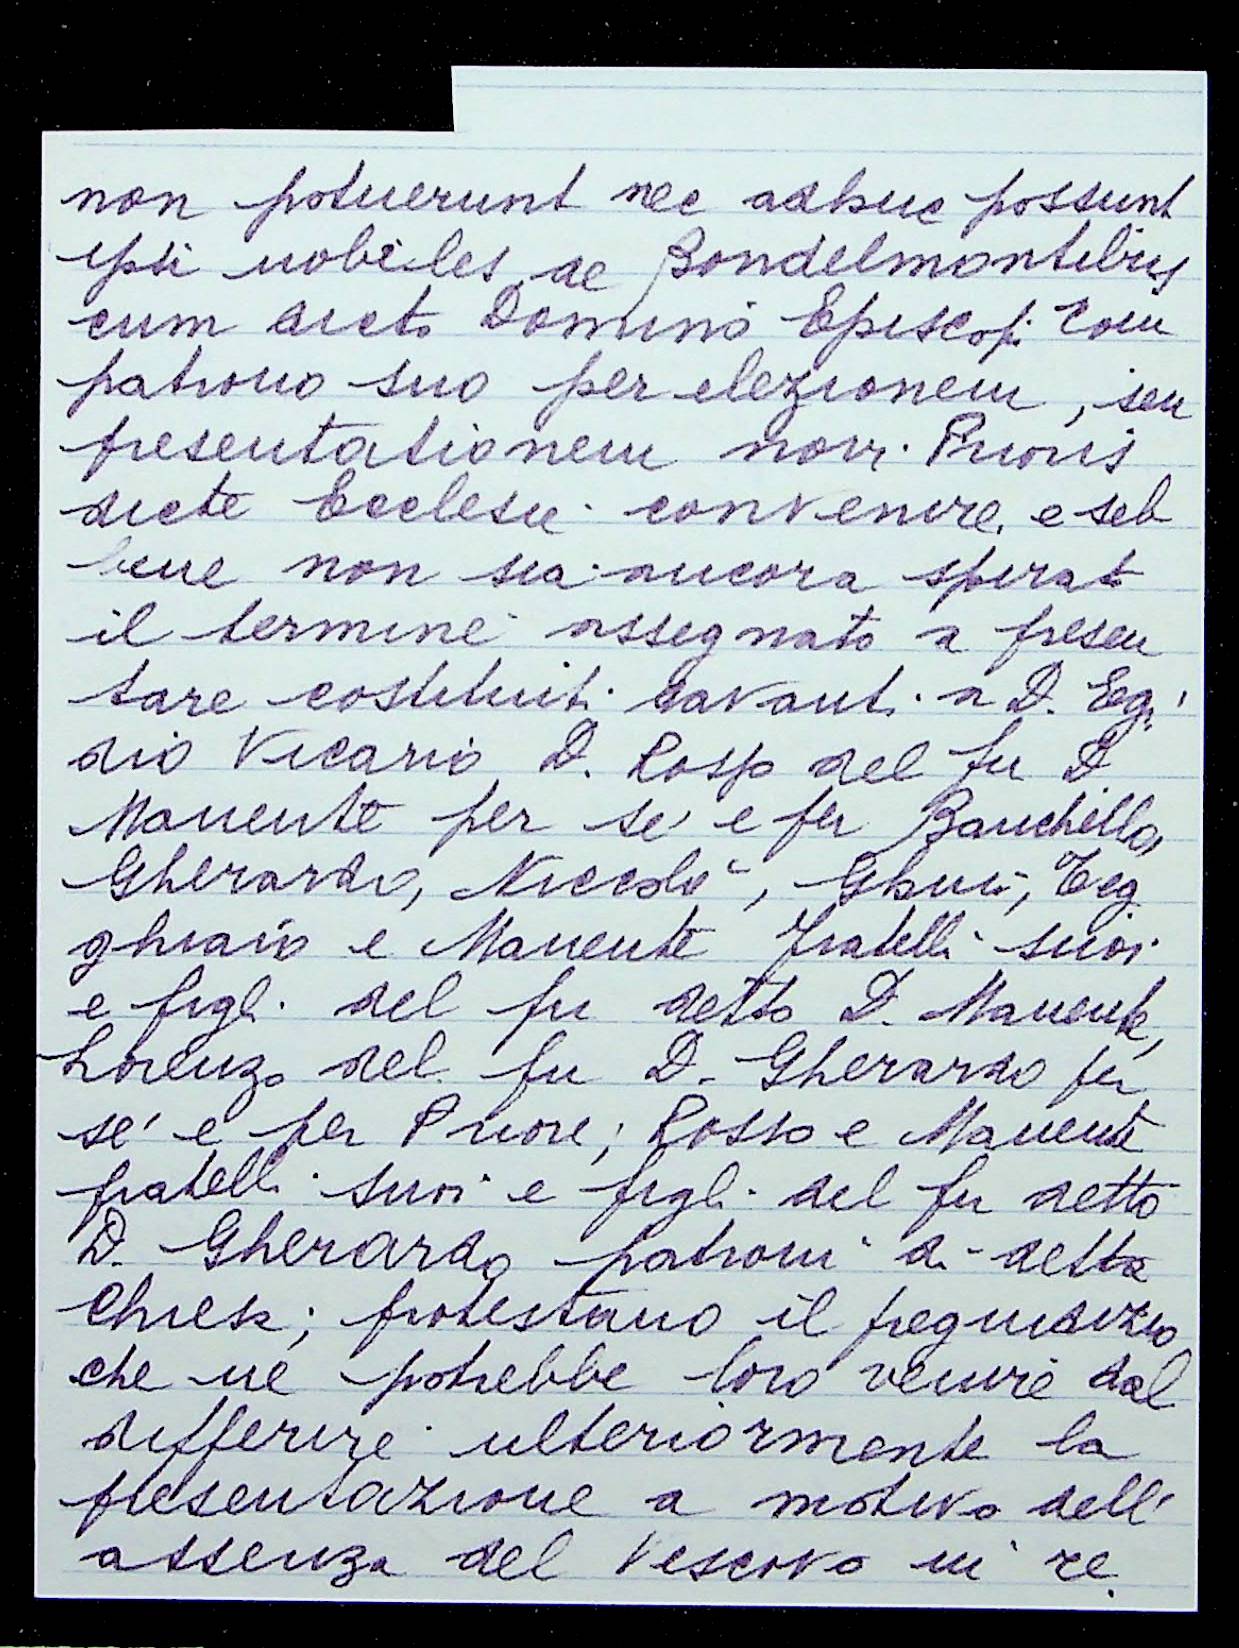 non potuerunt nec adhuc possunt
ipsi nobiles de Bondelmontibus
cum dicto Domino Episcopo Com
patrono suo per elezionem, seu
presentationem novi Prioris
dicte Ecclesie convenire, e seb
bene non sia ancora spirato
il termine assegnato a presen
tare costituiti davanti a D. Egi
dio Vicario D. Rosso del fu D.
Manente per sé e per Banchello,
Gherardo, Niccolò, Ghino, Teg
ghiaio e Manente fratelli suoi
e figli del fu detto D. Manente,
Lorenzo del fu D. Gherardo per
sé e per Priore; Rosso e Manente
fratelli suoi e figli del fu detto
D. Gherardo patroni di detta
Chiesa; protestano il pregiudizio
che ne potrebbe loro venire dal
differire ulteriormente la
presentazione a motivo dell'
assenza del Vescovo in re